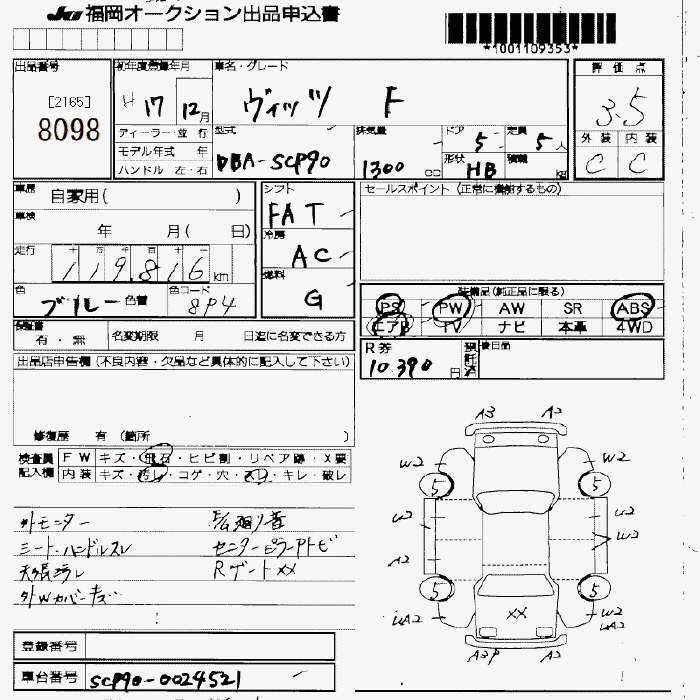 JU 福岡オークション出品申込書
*1001109353*
出品番号
[2165]
8098
初年度登録年月
H 17 12月
車名・グレード
ヴィッツ F
評価点
3.5
外装 内装
C C
ディーラー・並行
モデル年式 年
ハンドル 左・右
型式
DBA-SCP90
排気量
1300 cc
ドア 5
定員 5人
形状 HB
積載 kg
車歴 自家用( )
車検 年 月( 日)
走行 十 万 千 百 十 一
119,816 km
色 ブルー 色替
色コード 8P4
シフト
FAT
冷房
AC
燃料
G
セールスポイント (正常に機能するもの)
装備品(純正品に限る)
PS PW AW SR ABS
エアB TV ナビ 本革 4WD
保証書
有・無
名変期限 月 日迄に名変できる方
R券
10,390円
預託済
後日品
出品店申告欄 (不良内容・欠品など具体的に記入して下さい)
修復歴 有 (箇所 )
検査員記入欄
FW キズ・飛石・ヒビ割・リペア跡・X要
内装 キズ・汚レ・コゲ・穴・スレ・キレ・破レ
外モニター
シート・ハンドルスレ センターピラーアトビ
天張汚レ RゲートXX
外Wカバーキズ
A3
W2 W2
5 5
W2
A2
5 5
W2
XX
UA2
登録番号
車台番号 SCP90-0024521